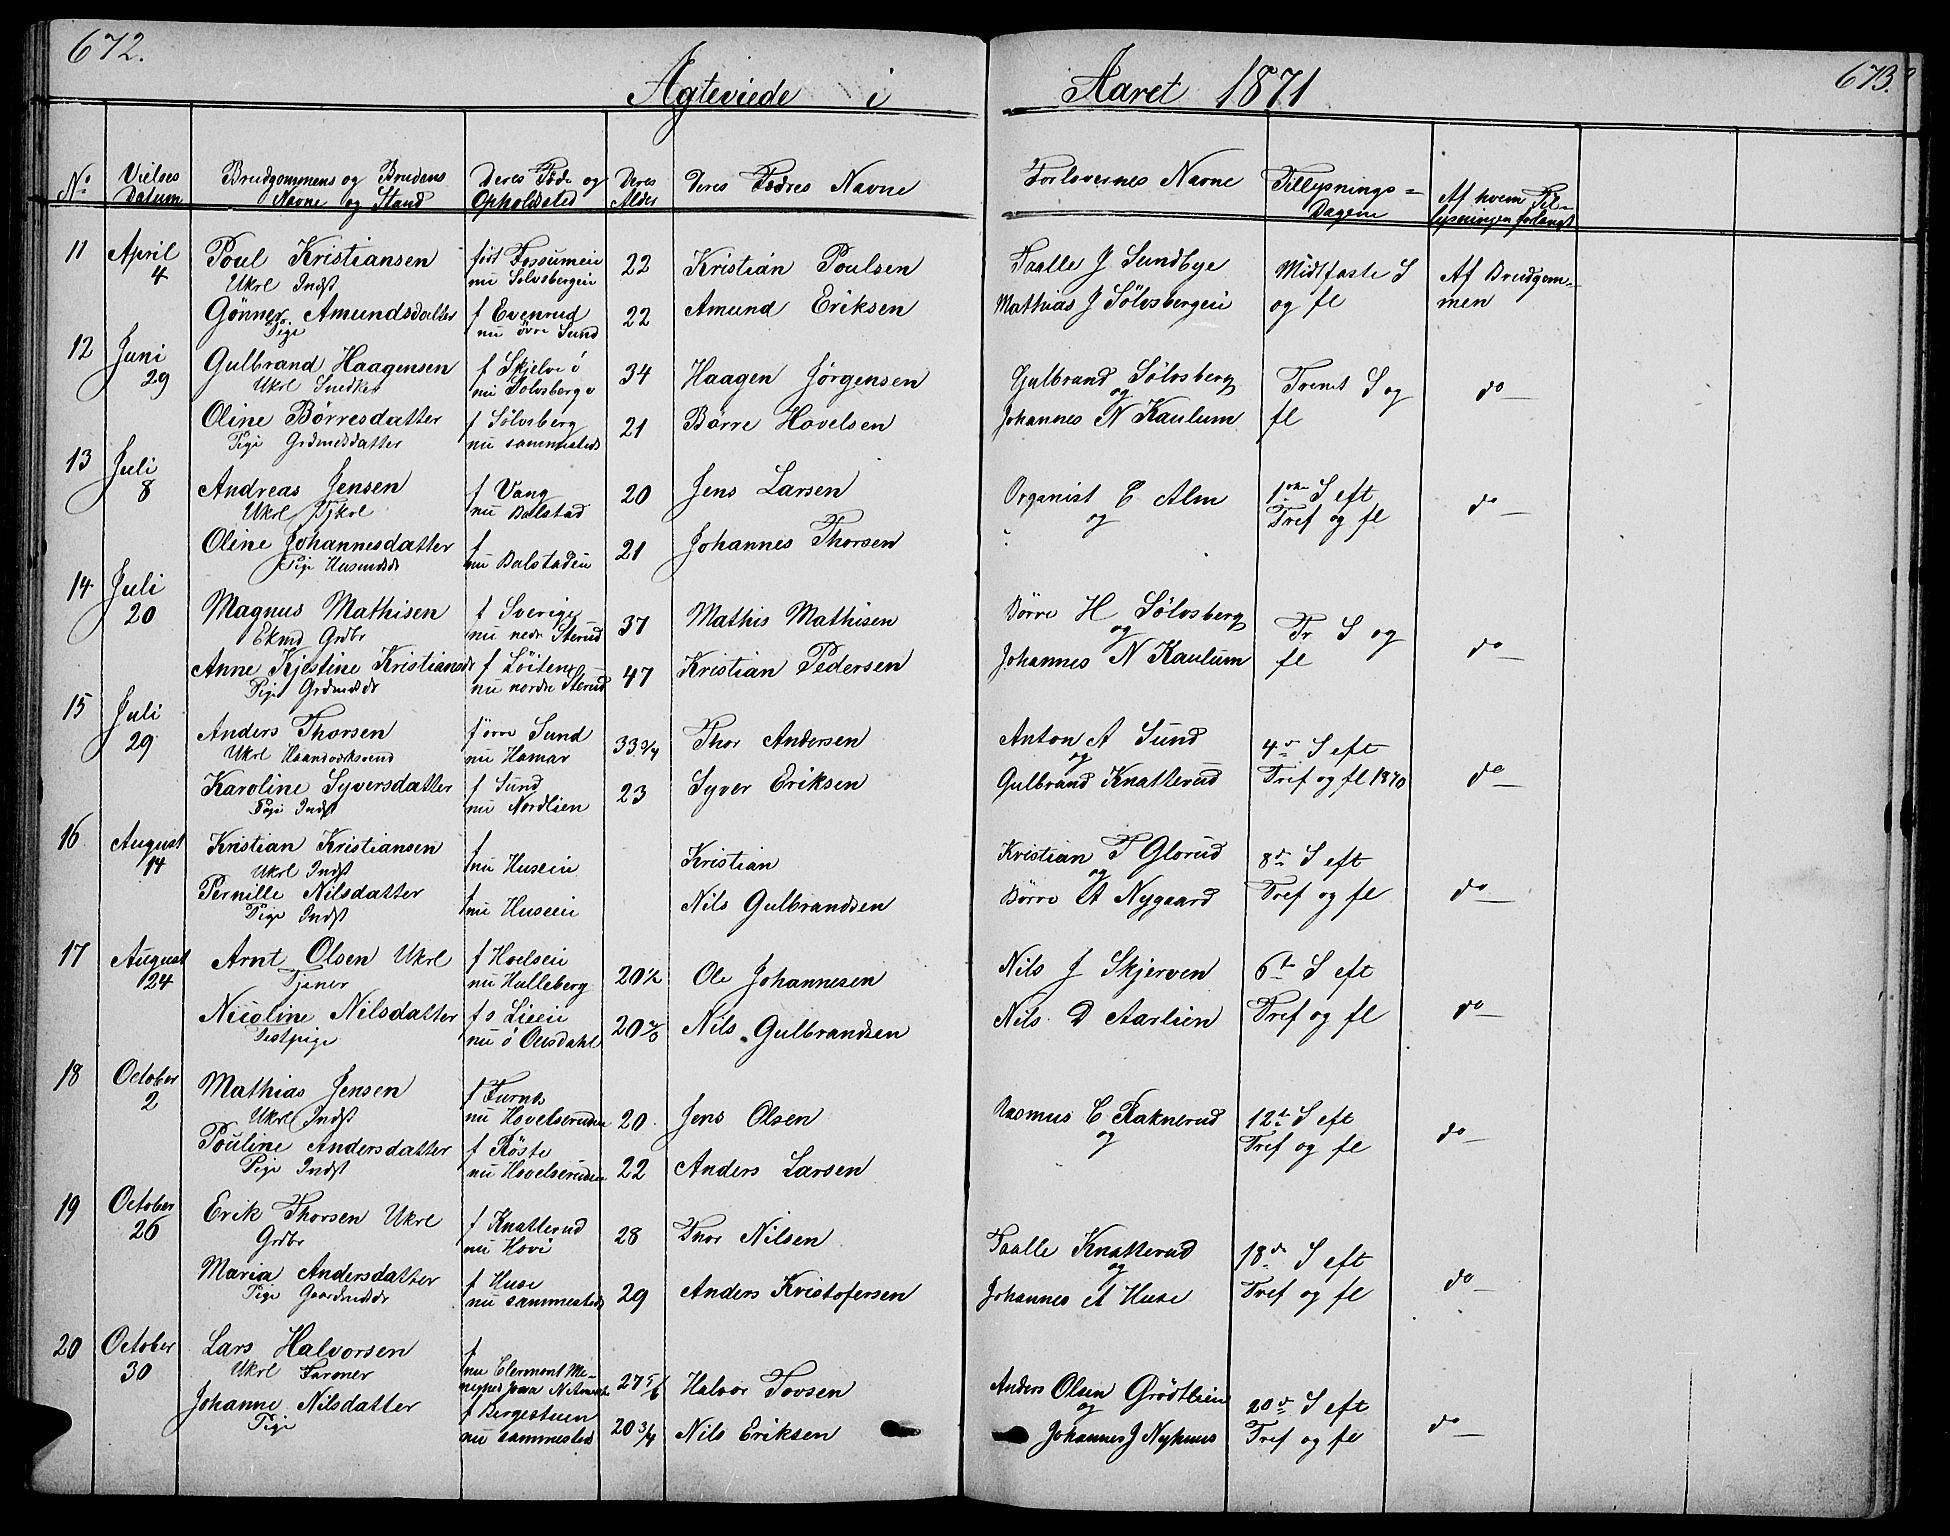 672.
673.
Ægteviede i Aaret 1871
No
Vielses Datum
Brudgommens og Brudens Navne og Stand
Deres Føde og Opholdsted
Deres Alder
Deres Fædres Navne
Forlovernes Navne
Tillysnings= Dagene
Af hvem Til= lysningen forlangt
11 April 4 Poul Kristiansen født Fossumeie 22 Kristian Poulsen Paalle J Sundbye Midfaste S Af Brudgom=
Ukrl Indst nu Sølvsbergeie
Gønner Amundsdatter f Evenrud 22 Amund Eriksen Mathias J Sölvsbergeie og fl men
Pige nu övre Sund
12 Juni 29 Gulbrand Haagensen f Skjelve ö 34 Haagen Jörgensen Gulbrand Sölvsberg Trenit S og do
Ukrl Snedker nu Sølvsberg og
Oline Börresdatter f Sölvsberg 21 Börre Hovelsen Johannes N Kaulum fl
Pige Grdmdsdatter nu sammesteds
13 Juli 8 Andreas Jensen f Vang 20 Jens Larsen Organist C Alm 1ste S eft do
Ukrl Tjkrl nu Balstad og Tref og fl
Oline Johannesdatter f 21 Johannes Thorsen
Pige Husmdsdr nu Balstadeie
14 Juli 20 Magnus Mathisen f Sverige 37 Mathis Mathisen Börre H Sölvsberg Tr S og do
Ekmd Grdbr nu nedr Sterud og
Anne Kjestine Kristiansdr f Löiten 47 Kristian Pedersen Johannes N Kaulum fl
Pige Grdmdsdr nu nordre Sterud
15 Juli 29 Anders Thorsen f övre Sund 33 3/4 Thor Andersen Anton A Sund 4de S eft do
Ukrl Haandværksvend nu Hamar og
Karoline Syversdatter f Sund 23 Syver Eriksen Gulbrand Knatterud Tref og fl 1870
Pige Indst nu Nordlien
16 August 14 Kristian Kristiansen f Kristian Kristian T Glorud 8de S eft do
Ukrl Indst nu Huseie og
Pernille Nilsdatter f Nils Gulbrandsen Börre A Nygaard Tref og fl
Pige Indst nu Huseie
17 August 24 Arnt Olsen Ukrl f Hoelseie 20 1/2 Ole Johannesen Nils J Skjerven 6te S eft do
Tjener nu Hulleberg
Nicoline Nilsdatter f s Lieeie Nils Gulbrandsen Nils D Aarlien Tref og fl
nu ö Ousdahl
18 October 2 Mathias Jensen f Furnæs 20 Jens Olsen Rasmus C Raknerud 12te S eft do
Ukrl Indst nu Hovelsrudeie og
Pouline Andersdatter f Röste 22 Anders Larsen Tref og fl
Pige Indst nu Hovelsrudeie
19 October 26 Erik Thorsen Ukrl f Knatterud 28 Thor Nilsen Paalle Knatterud 18de S eft do
Grdbr nu Hovi og
Maria Andersdatter f Huse 29 Anders Kristofersen Johannes A Huse Tref og fl
Pige Gaardmdsdr nu sammesteds
20 October 30 Lars Halvorsen f 27 5/6 Halvor Tovsen Anders Olsen Grödtlien 20de S eft do
Ukrl Farmer nu Clermont Me= nighed Iowa N Amerika og
Johanne Nilsdatter f Bergestuen 20 3/4 Nils Eriksen Johannes J Nyhuus Tref og fl
Pige nu sammesteds